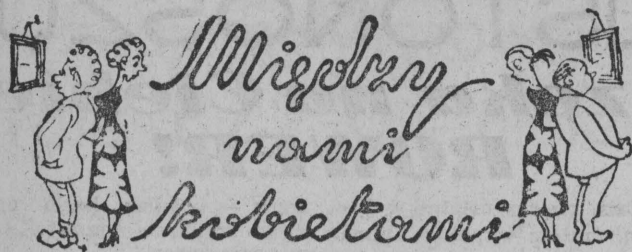 Między
nami
kobietami